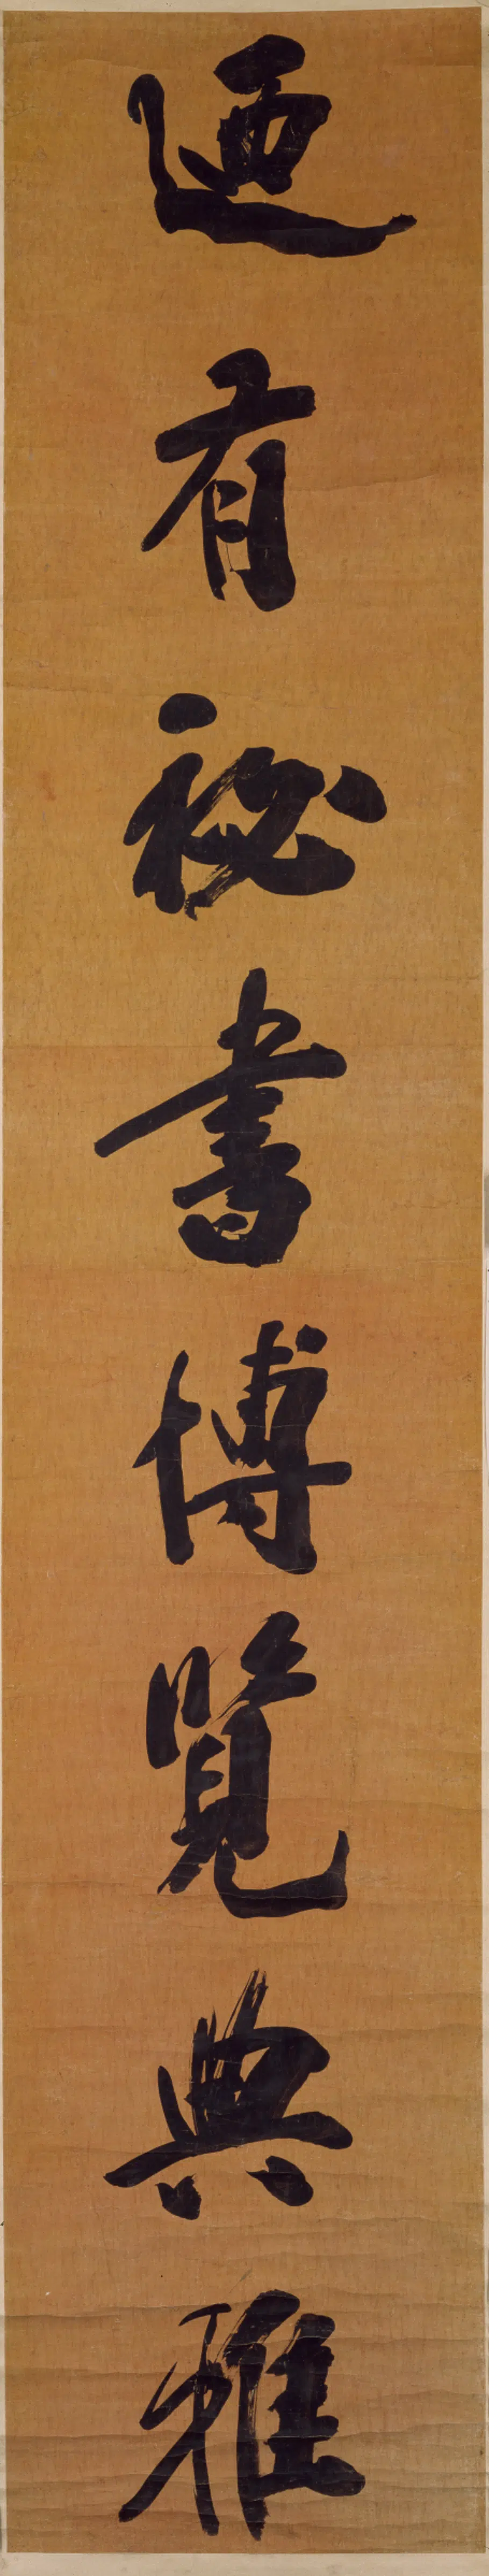 迺有祕書博覽典雅